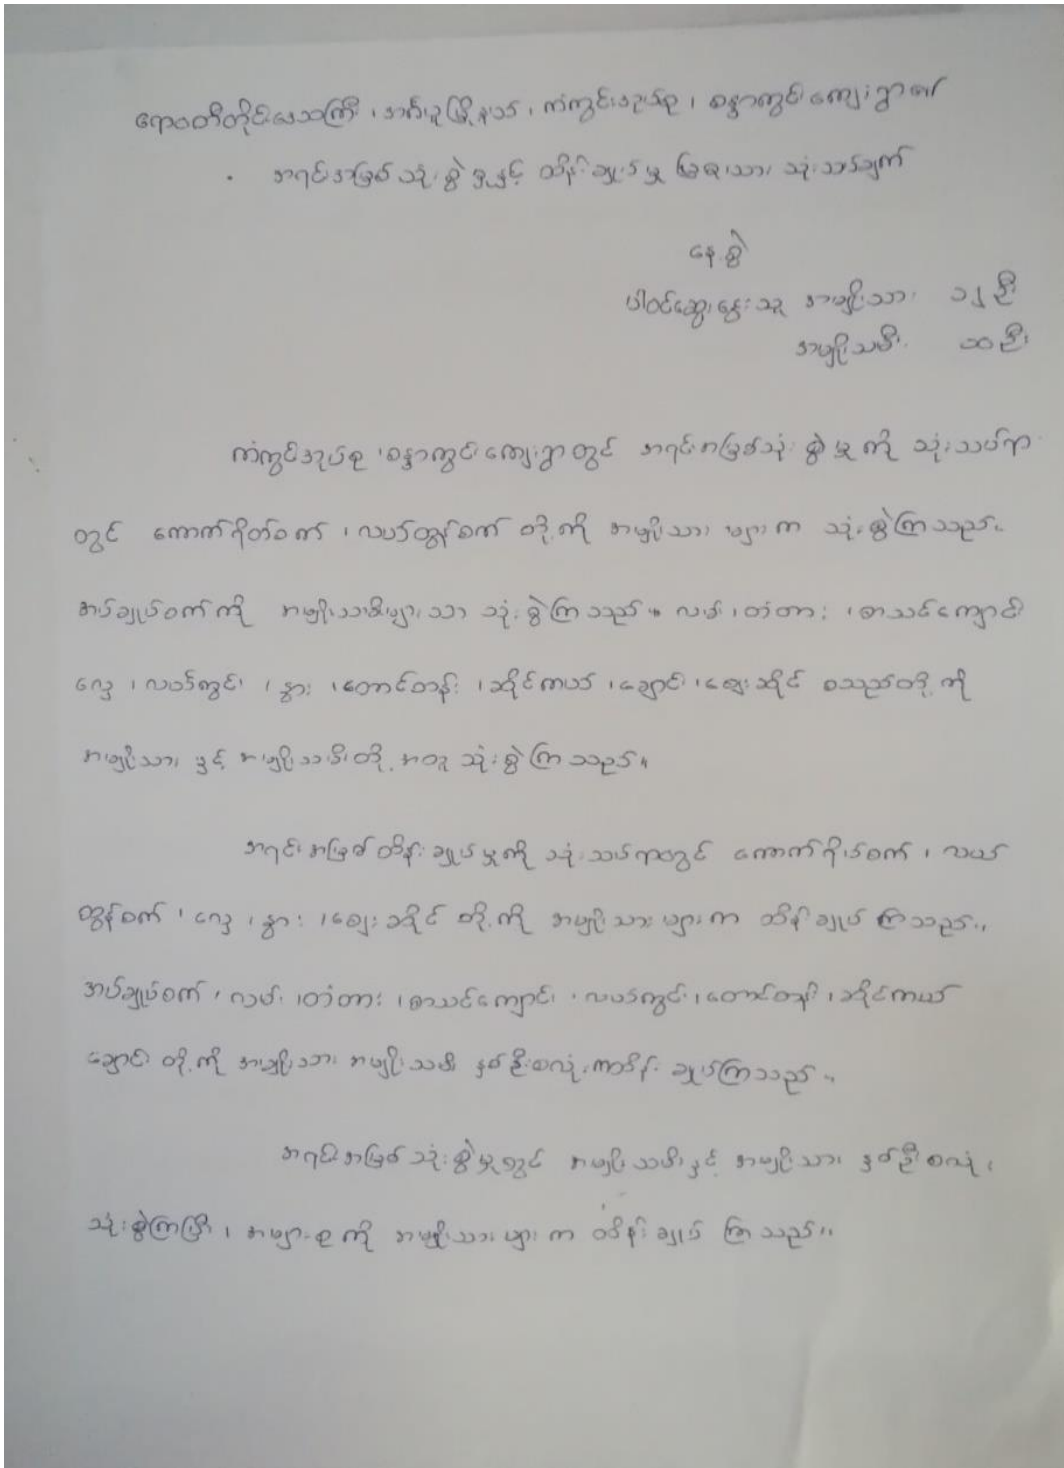 ဧရာဝတီတိုင်းဒေသကြီး ၊ အင်္ဂပူမြို့နယ် ၊ ကံကွင်းအုပ်စု ၊ စန္ဒာကွင်းကျေးရွာ၏
အရင်းအမြစ်သုံးစွဲမှုနှင့် ထိန်းချုပ်မှု ပြဇယား သုံးသပ်ချက်
နေ့စွဲ
ပါဝင်ဆွေးနွေးသူ အမျိုးသား ၁၂ ဦး
အမျိုးသမီး ဦး
ကံကွင်းအုပ်စု ၊ စန္ဒာကွင်းကျေးရွာတွင် အရင်းအမြစ်သုံးစွဲမှုကို သုံးသပ်ရာ
တွင် ကောက်ရိတ်စက် ၊ လယ်ထွန်စက် တို့ကို အမျိုးသားများက သုံးစွဲကြသည်။
အပ်ချုပ်စက်ကို အမျိုးသမီးများသာ သုံးစွဲကြသည်။ လမ်း ၊ တံတား ၊ စာသင်ကျောင်း
လှေ ၊ လယ်ကွင်း ၊ နွား ၊ တောင်တန်း ၊ ဆိုင်ကယ် ၊ ချောင်း ၊ ဈေးဆိုင် စသည်တို့ကို
အမျိုးသား နှင့် အမျိုးသမီးတို့ အတူ သုံးစွဲကြသည်။
အရင်းအမြစ်ထိန်းချုပ်မှုကို သုံးသပ်ရာတွင် ကောက်ရိတ်စက် ၊ လယ်
ထွန်စက် ၊ လှေ ၊ နွား ၊ ဈေးဆိုင် တို့ကို အမျိုးသားများက ထိန်းချုပ်ကြသည်။
အပ်ချုပ်စက် ၊ လမ်း ၊ တံတား ၊ စာသင်ကျောင်း ၊ လယ်ကွင်း ၊ တောင်တန်း ၊ ဆိုင်ကယ်
ချောင်း တို့ကို အမျိုးသား အမျိုးသမီး နှစ်ဦးစလုံးကထိန်းချုပ်ကြသည်။
အရင်းအမြစ်သုံးစွဲမှုတွင် အမျိုးသမီးနှင့် အမျိုးသား နှစ်ဦးစလုံး
သုံးစွဲကြပြီး ၊ အများစုကို အမျိုးသားများက ထိန်းချုပ်ကြသည်။